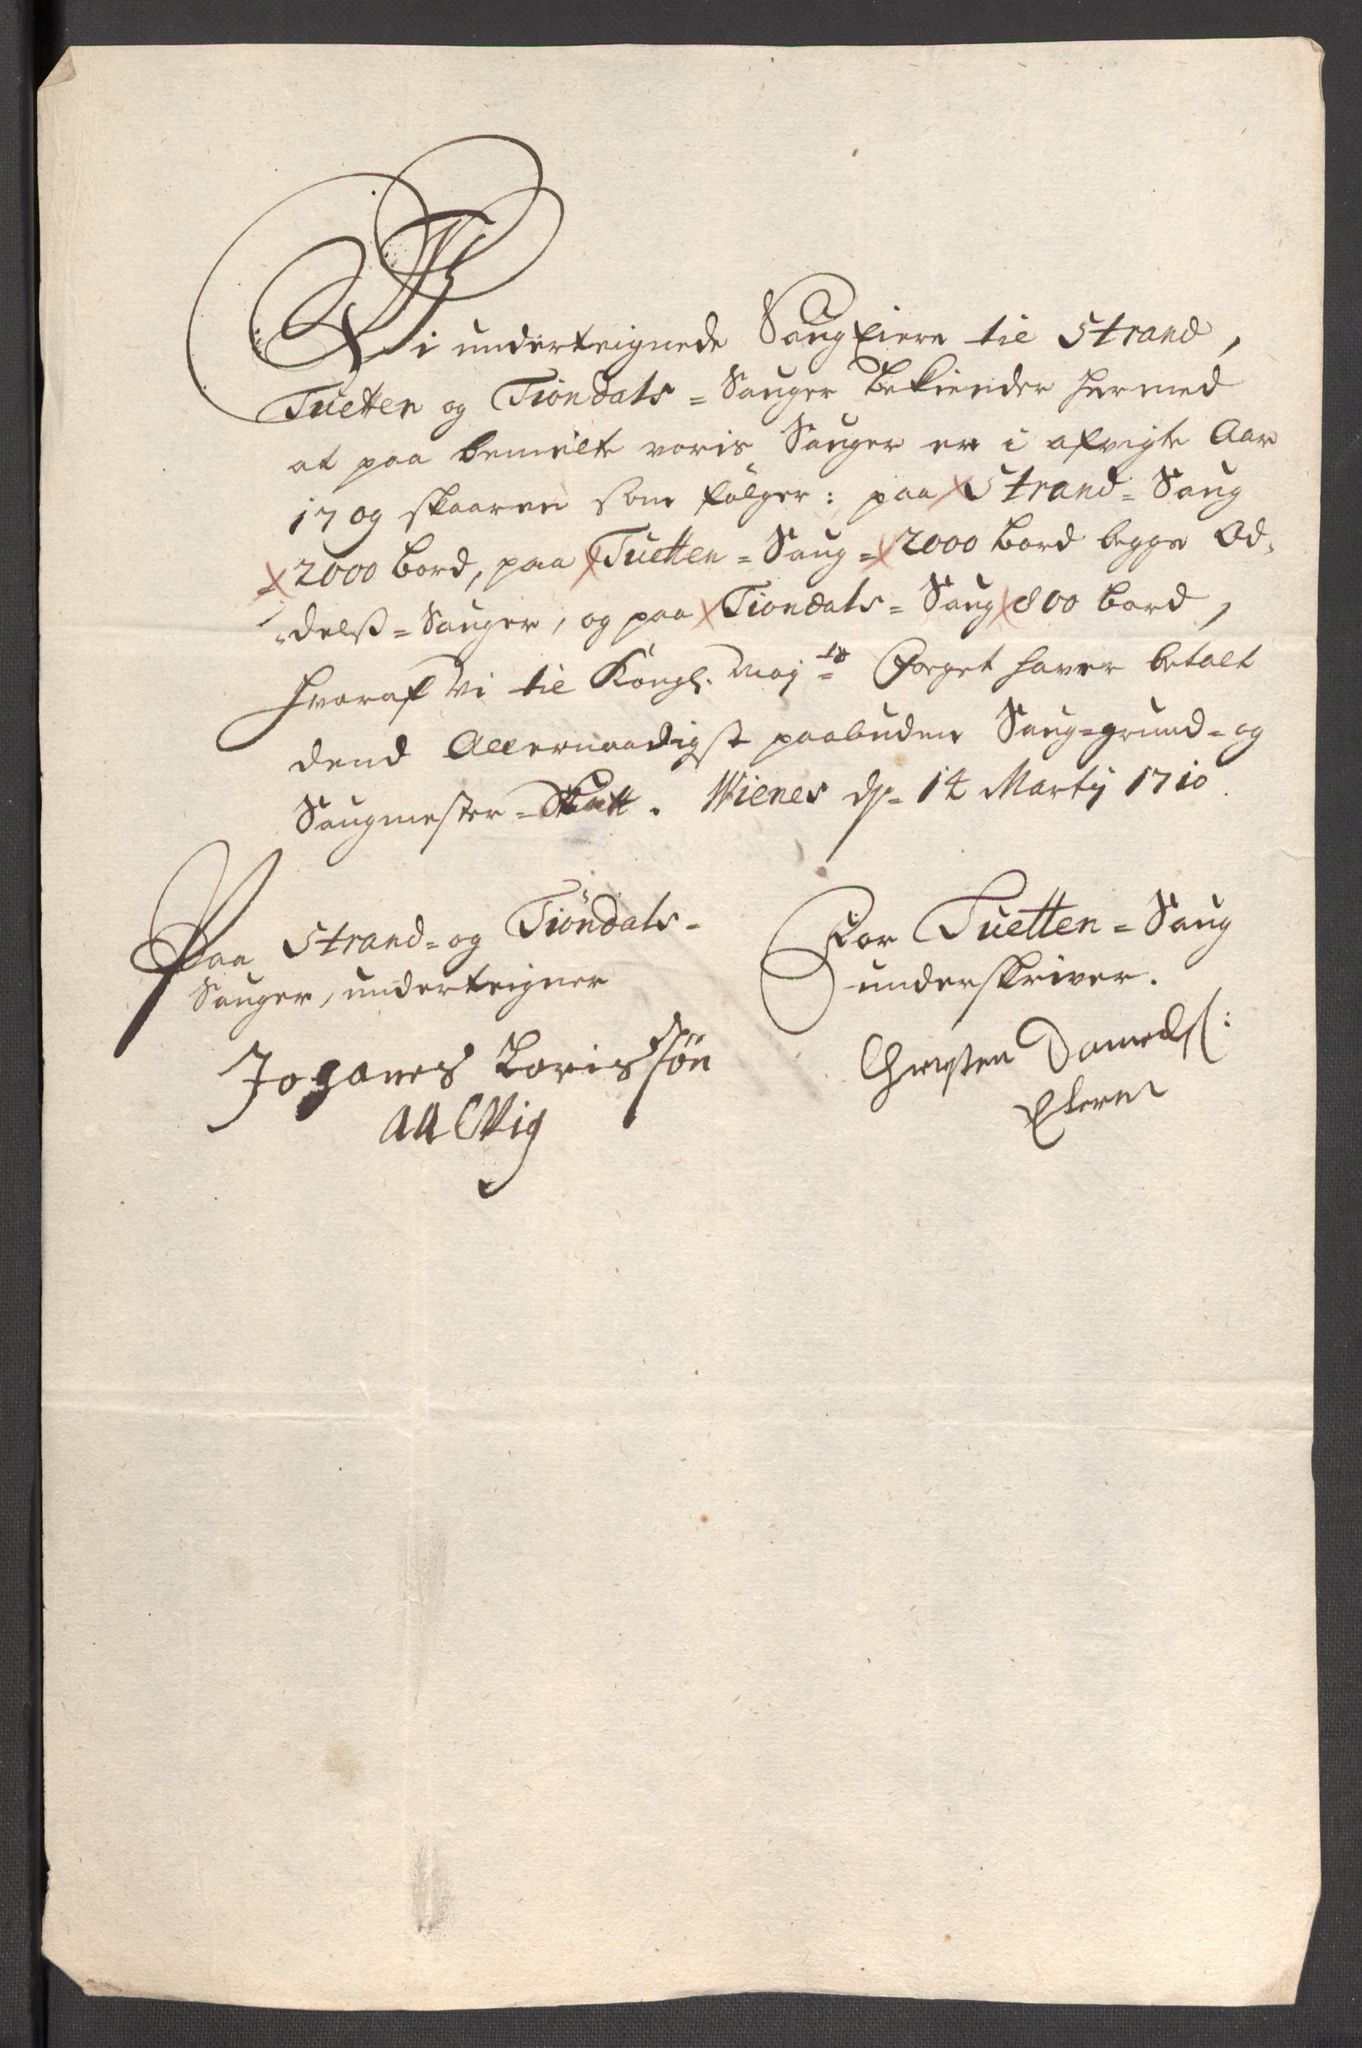 Wi underteignede Saug Eiere til Strand,
Tuetten og Tiondals = Sauger bekiender hermed
at paa bemelte voris Sauger er i afvigte Aar
1709 skaaren som fölger: paa Strand = Saug
= 2000 bord, paa Tuetten = Saug = 2000 bord begge Od,
delß = Sauger, og paa Tiondals = Saug 800 bord,
hvoraf Vi til Kongl. May.ts Foeget haver betalt
dend Allernaadigst paabudene Saug-grund- og
Saugmester = Skatt. Wienes dn. 14 Martij 1710.
Paa Strand- og Tiöndals-
Sauger, underteigner
Johanes Lorissön
AALVig
For Tuetten = Saug
underskriver.
Christen Danielß:
Ekeren